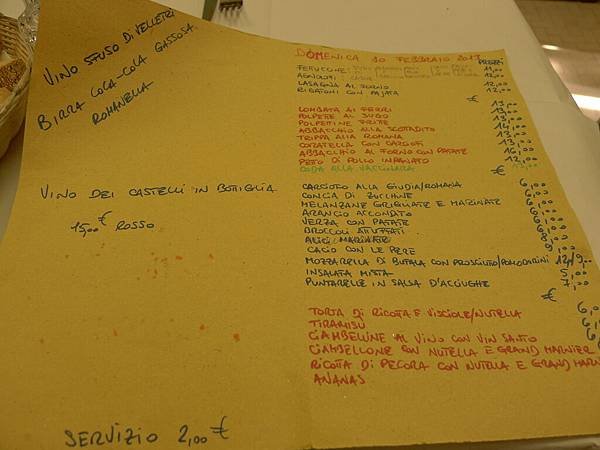 VINO SFUSO DI VELLETRI
BIRRA COLA-COLA GASSOSA
ROMANELLA
VINO DEI CASTELLI IN BOTTIGLIA
15,00 € ROSSO
SERVIZIO 2,00 €
DOMENICA 10 FEBBRAIO PREZZI
FETTUCCINE: 11,00
AGNOLOTTI: 12,00
LASAGNA AL FORNO 12,00
RIGATONI CON PAJATA 12,00
€
LOMBATA AI FERRI 13,00
POLPETTE AL SUGO 13,00
POLPETTINE FRITTE
ABBACCHIO ALLA SCOTTADITO 14,00
TRIPPA ALLA ROMANA 13,00
CORATELLA CON CARCIOFI
ABBACCHIO AL FORNO CON PATATE 16,00
PETTO DI POLLO INPANATO 12,00
CODA ALLA VACCINARA
€
CARCIOFO ALLA GIUDIA/ROMANA 6,00
CONCIA DI ZUCCHINE 6,00
MELANZANE GRIGLIATE E MARINATE
ARANCIO ACCONDATO
VERZA CON PATATE
BROCCOLI STUFATI
ALICI MARINATE
CACIO CON LE PERE
MOZZARELLA DI BUFALA CON PROSCIUTTO/POMODORINI 12/9,00
INSALATA MISTA 5,00
PUNTARELLE IN SALSA D'ACCIUGHE 7,00
€
TORTA DI RICOTTA E VISCIOLE/NUTELLA 6,00
TIRAMISU
CIAMBELLINE AL VINO CON VIN SANTO
CIAMBELLONE CON NUTELLA E GRAND MARNIER
RICOTTA DI PECORA CON NUTELLA E GRAND MARN
ANANAS